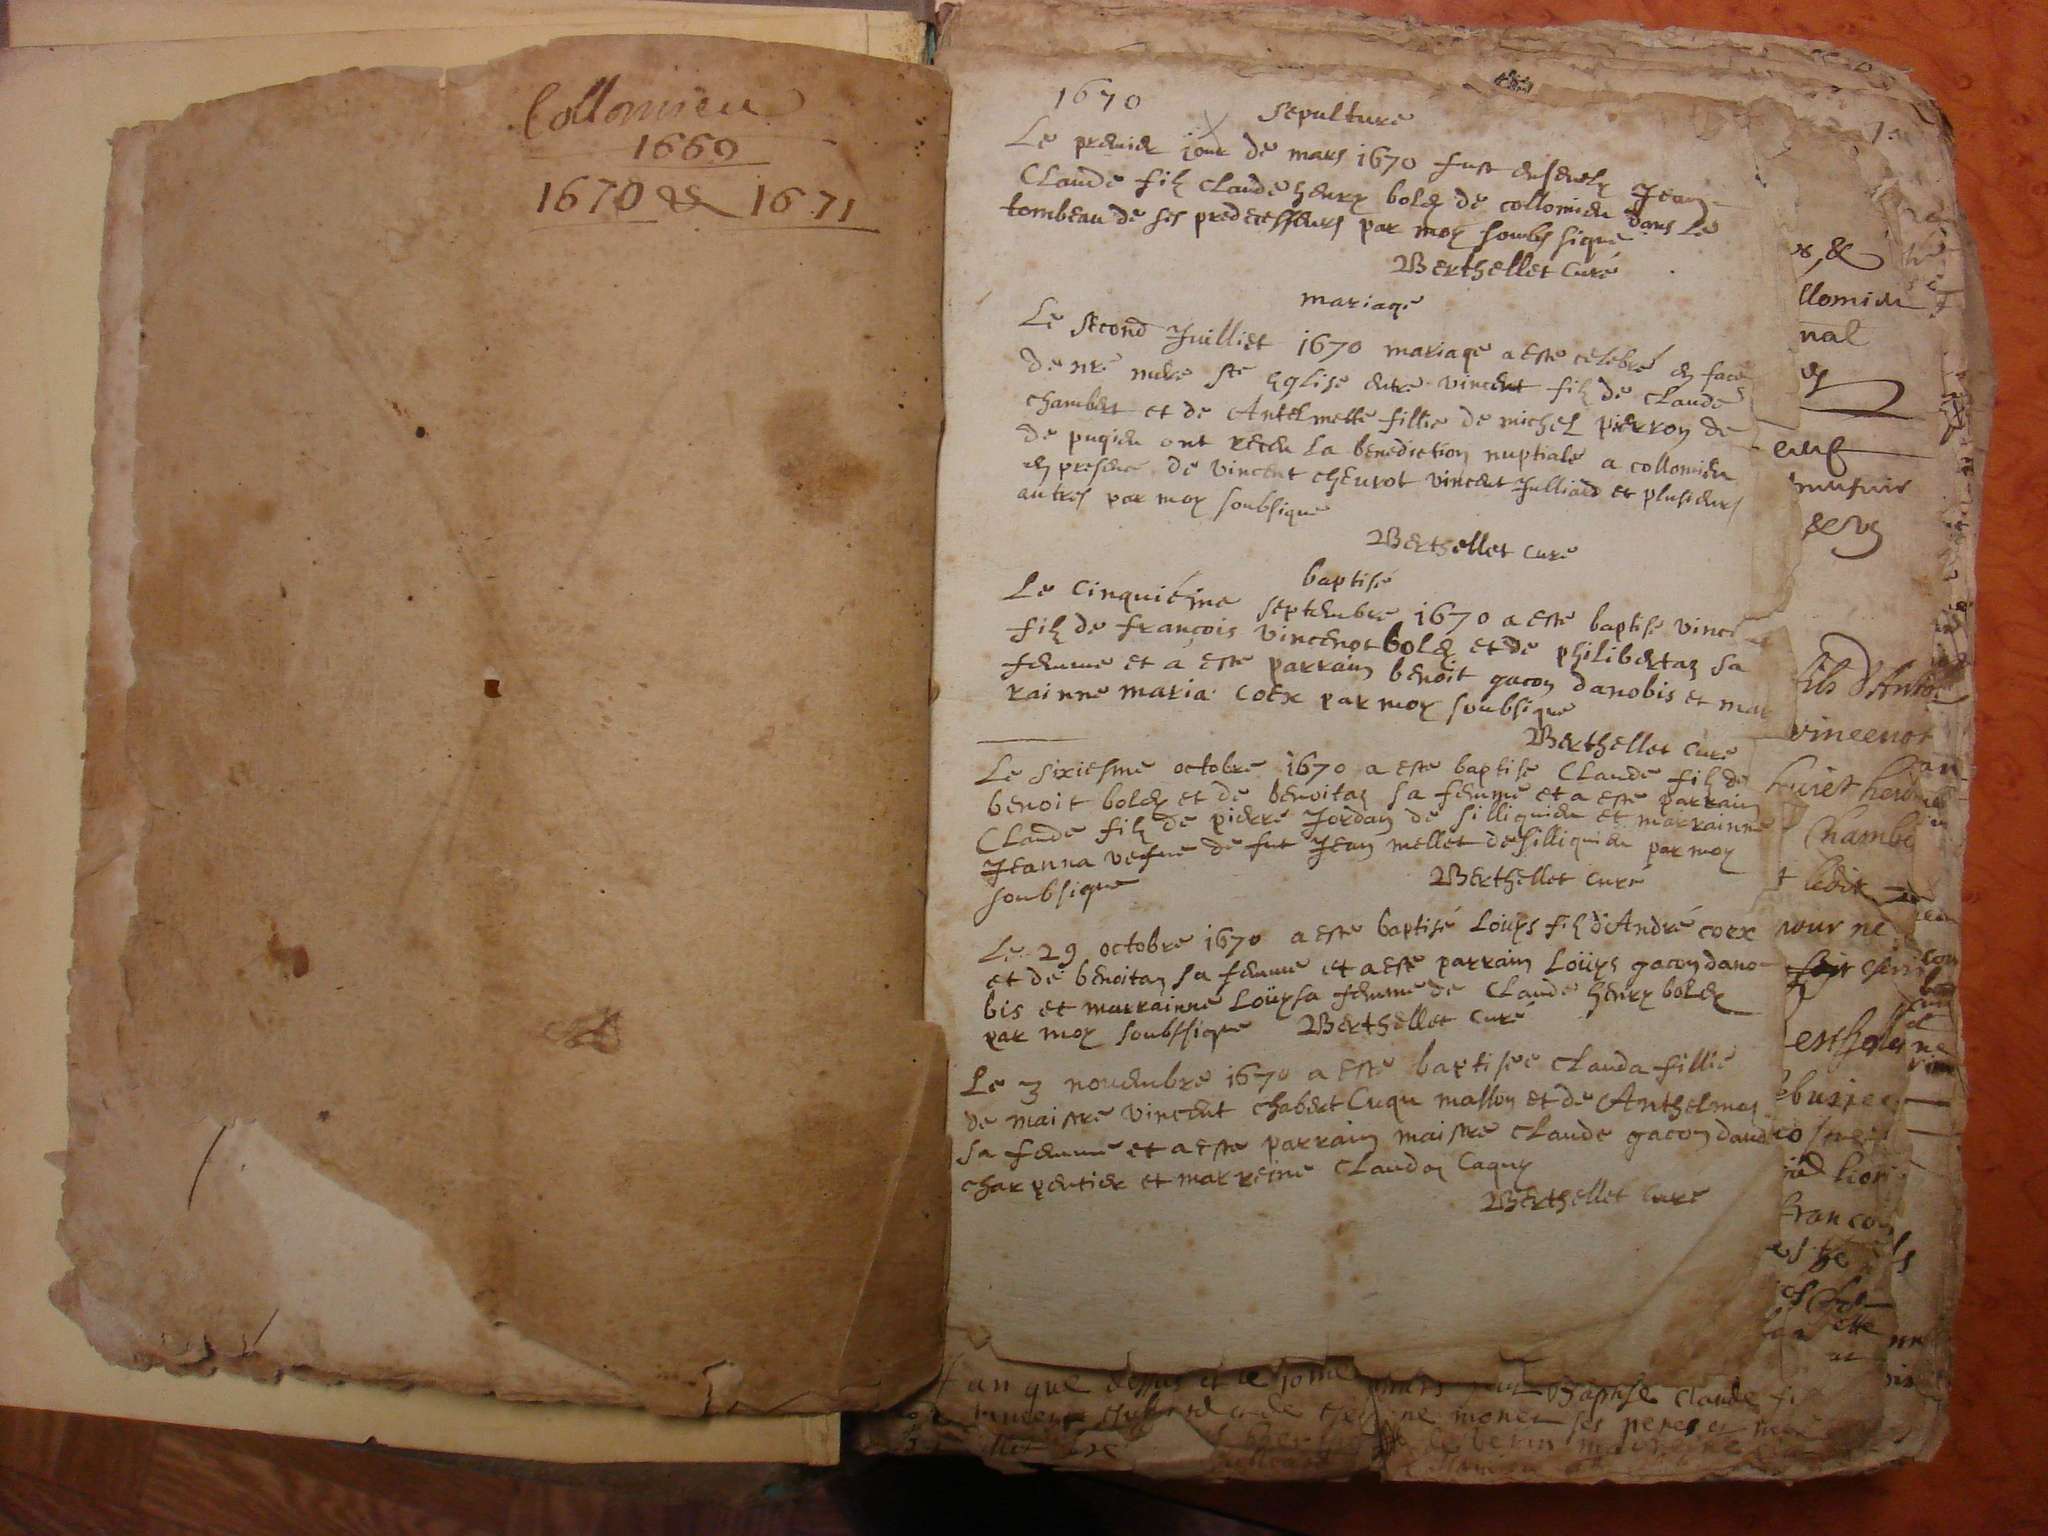 Collomieu
1669
1670 & 1671
1670
sepulture
Le premier jour de mars 1670 fust ensevely Jean
Claude filz Claude henry boley de collomieu dans le
tombeau de ses predecesseurs par moy soubs signe
Berthellet Curé
mariage
Le second Juilliet 1670 mariage a este celebré en face
de nre mere ste eglise entre vincent filz de claude
chambert et de Antelmette fillie de michel pierron de
de pugieu ont receu la benediction nuptiale a collomieu
en presence de vincent cheurot vincent Julliard et plusieurs
autres par moy soubsigne
Berthellet cure
baptise
Le cinquiéme septembre 1670 a este baptisé vincent
filz de françois vincenot boley et de philibertaz sa
femme et a este parrain benoit gacon danobis et mar
rainne maria coex par moy soubsigne
Berthellet cure
Le sixiesme octobre 1670 a este baptisé Claude filz de
benoit boley et de benoitaz sa femme et a este parrain
Claude filz de pierre Jordan de silliquieu et marrainne
Jeanna vefue de fut Jean mellet de silliquieu par moy
soubsigne
Berthellet curé
Le 29 octobre 1670 a este baptisé Loüys filz d'André coex
et de benoitaz sa femme et a este parrain Loüys gacon dano
bis et marrainne Loüysa femme de Claude henry boley
par moy soubssigne Berthellet Curé
Le 3 novembre 1670 a este baptisée Clauda fillie
de maistre vincent chabert masson et de Anthelmaz
sa femme et a este parrain maistre Claude gacon
charpentier et marreine Claudaz
Berthellet Curé
llomieu
nal
fils d'Antoi
vincenot
Chambe
francoy
an que dessus et le jour baptisé Claude
ses peres et